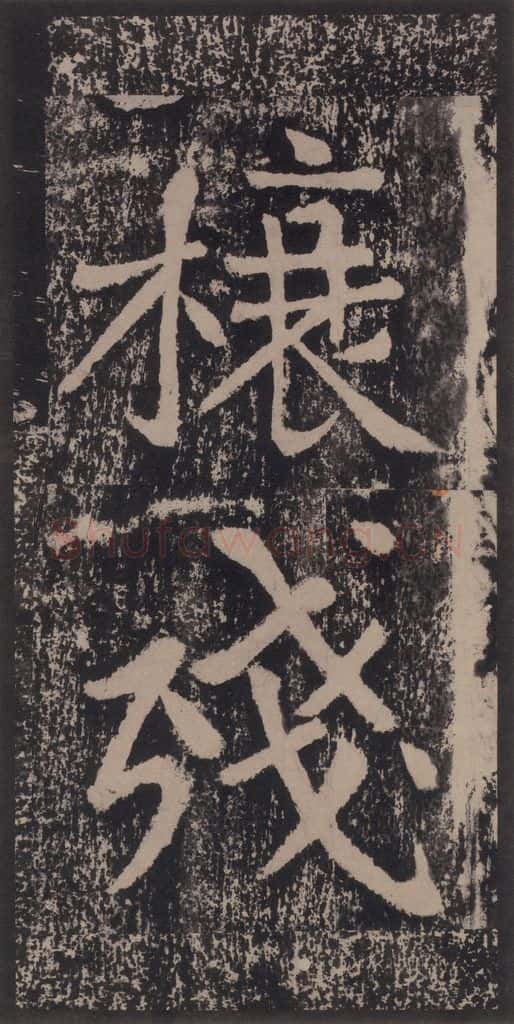 榱
殘
Shufawang.CN